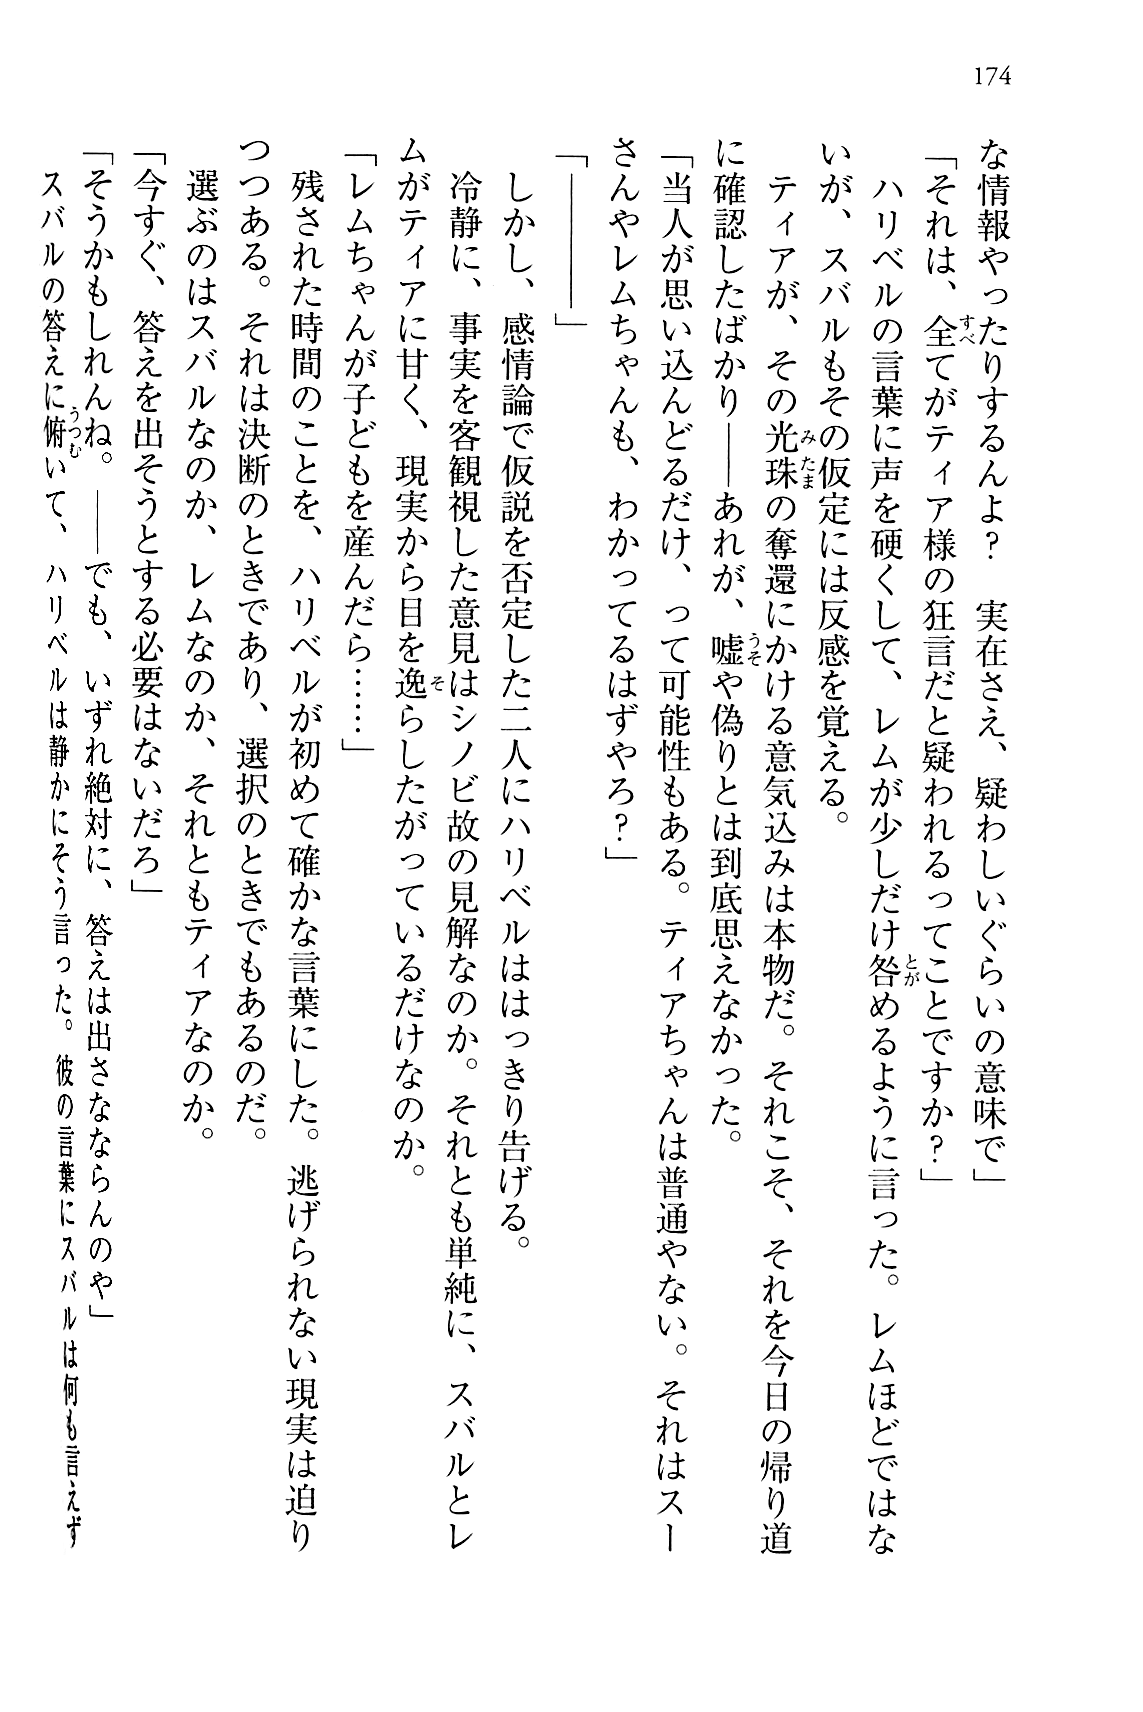 174
な情報やったりするんよ？　実在さえ、疑わしいぐらいの意味で」
「それは、全てがティア様の狂言だと疑われるってことですか？」
　ハリベルの言葉に声を硬くして、レムが少しだけ咎めるように言った。レムほどではな
いが、スバルもその仮定には反感を覚える。
　ティアが、その光珠の奪還にかける意気込みは本物だ。それこそ、それを今日の帰り道
に確認したばかり――あれが、嘘や偽りとは到底思えなかった。
「当人が思い込んどるだけ、って可能性もある。ティアちゃんは普通やない。それはスー
さんやレムちゃんも、わかってるはずやろ？」
「――――」
　しかし、感情論で仮説を否定した二人にハリベルははっきり告げる。
　冷静に、事実を客観視した意見はシノビ故の見解なのか。それとも単純に、スバルとレ
ムがティアに甘く、現実から目を逸らしたがっているだけなのか。
「レムちゃんが子どもを産んだら……」
　残された時間のことを、ハリベルが初めて確かな言葉にした。逃げられない現実は迫り
つつある。それは決断のときであり、選択のときでもあるのだ。
　選ぶのはスバルなのか、レムなのか、それともティアなのか。
「今すぐ、答えを出そうとする必要はないだろ」
「そうかもしれんね。――でも、いずれ絶対に、答えは出さなならんのや」
　スバルの答えに俯いて、ハリベルは静かにそう言った。彼の言葉にスバルは何も言えず